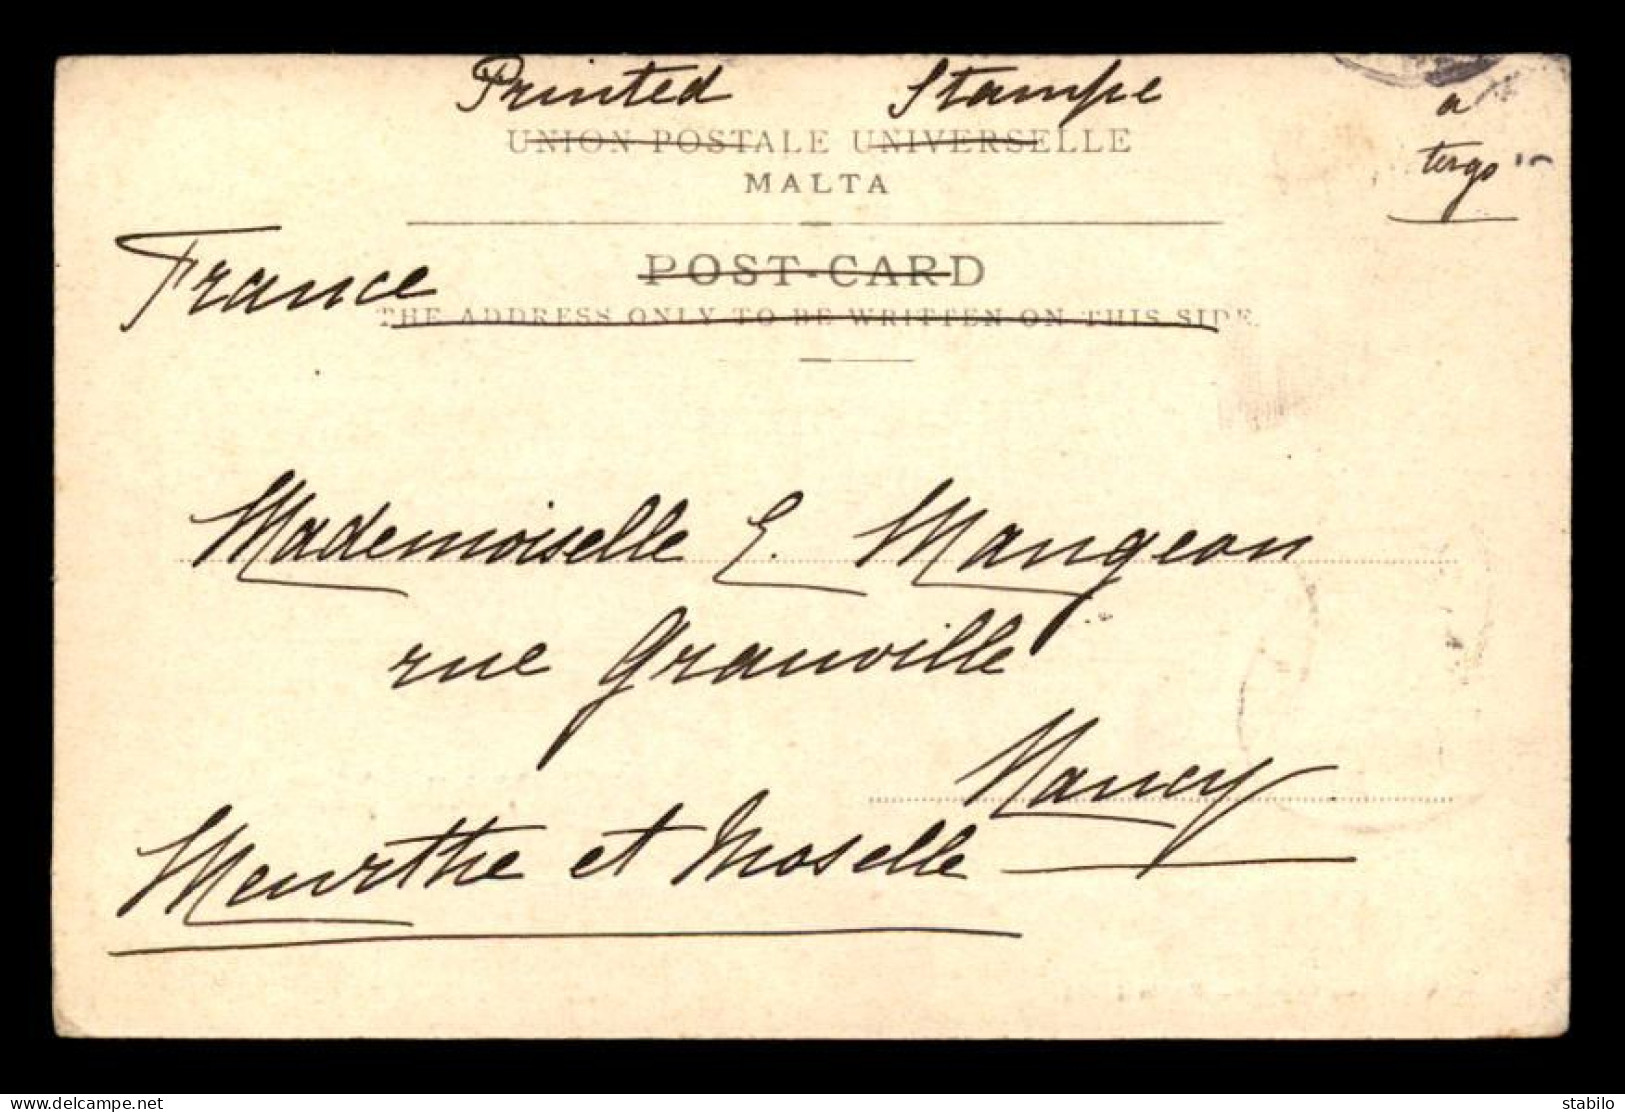 Printed Stampe
a
tergo
UNION POSTALE UNIVERSELLE
MALTA
France
POST-CARD
THE ADDRESS ONLY TO BE WRITTEN ON THIS SIDE.
Mademoiselle E. Mangeon
rue Granville
Nancy
Meurthe et Moselle
delcampe.net
stabilo